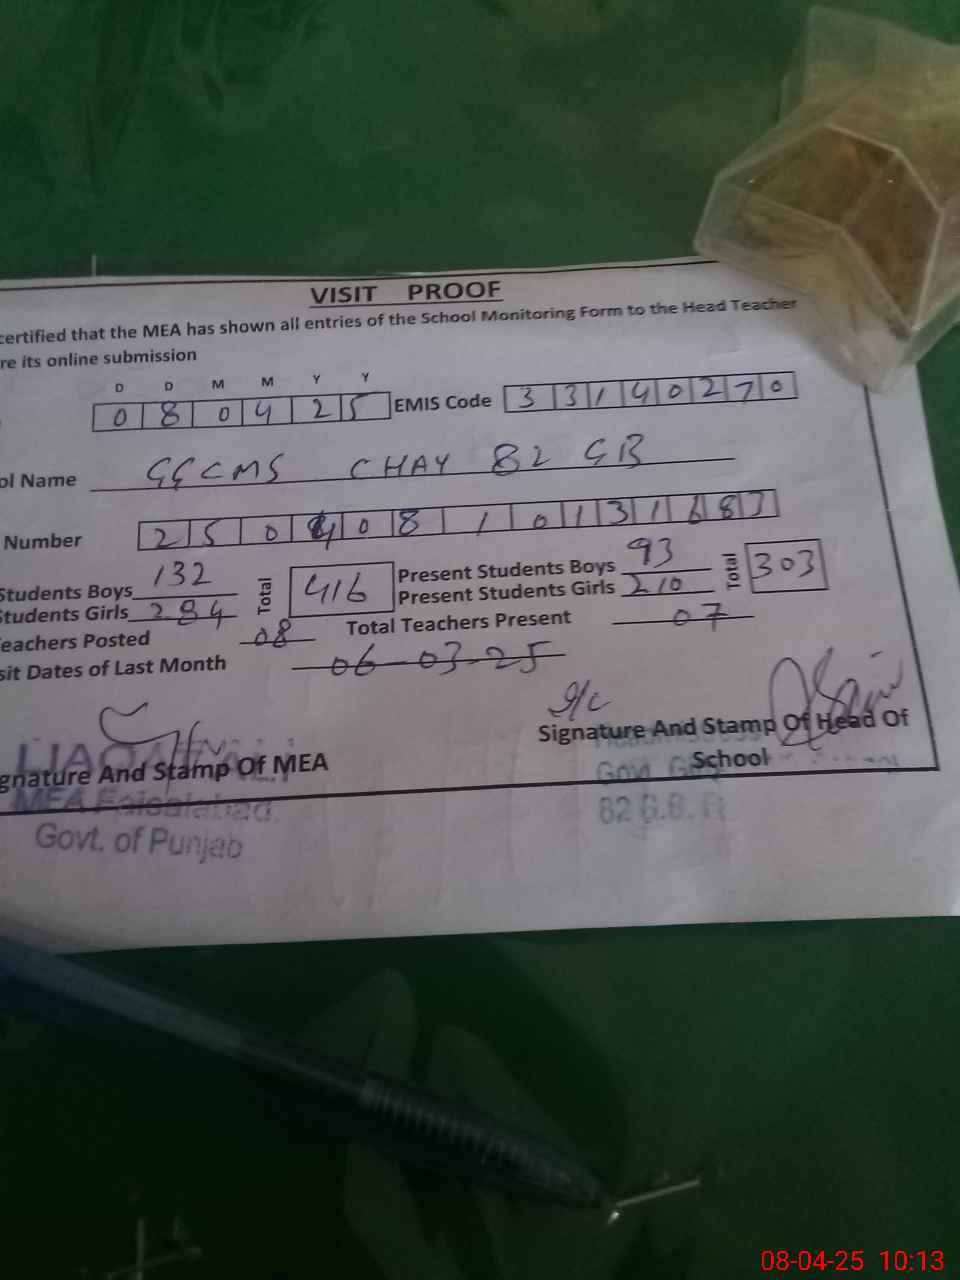 VISIT PROOF
certified that the MEA has shown all entries of the School Monitoring Form to the Head Teacher
re its online submission
D D M M Y Y
0 8 0 4 2 5 EMIS Code 3 3 1 4 0 2 7 0
ol Name GGCMS CHAY 82 GB
Number 2 5 0 4 0 8 1 0 1 3 1 6 8 3
Students Boys 132 Total 416 Present Students Boys 93 Total 303
Students Girls 284 Present Students Girls 210
eachers Posted 08 Total Teachers Present 07
sit Dates of Last Month 06-03-25
I/C
gnature And Stamp Of MEA Signature And Stamp Of Head Of
School
MEA Faisalabad.
Govt. of Punjab
Govt.
82 G.B.
08-04-25 10:13